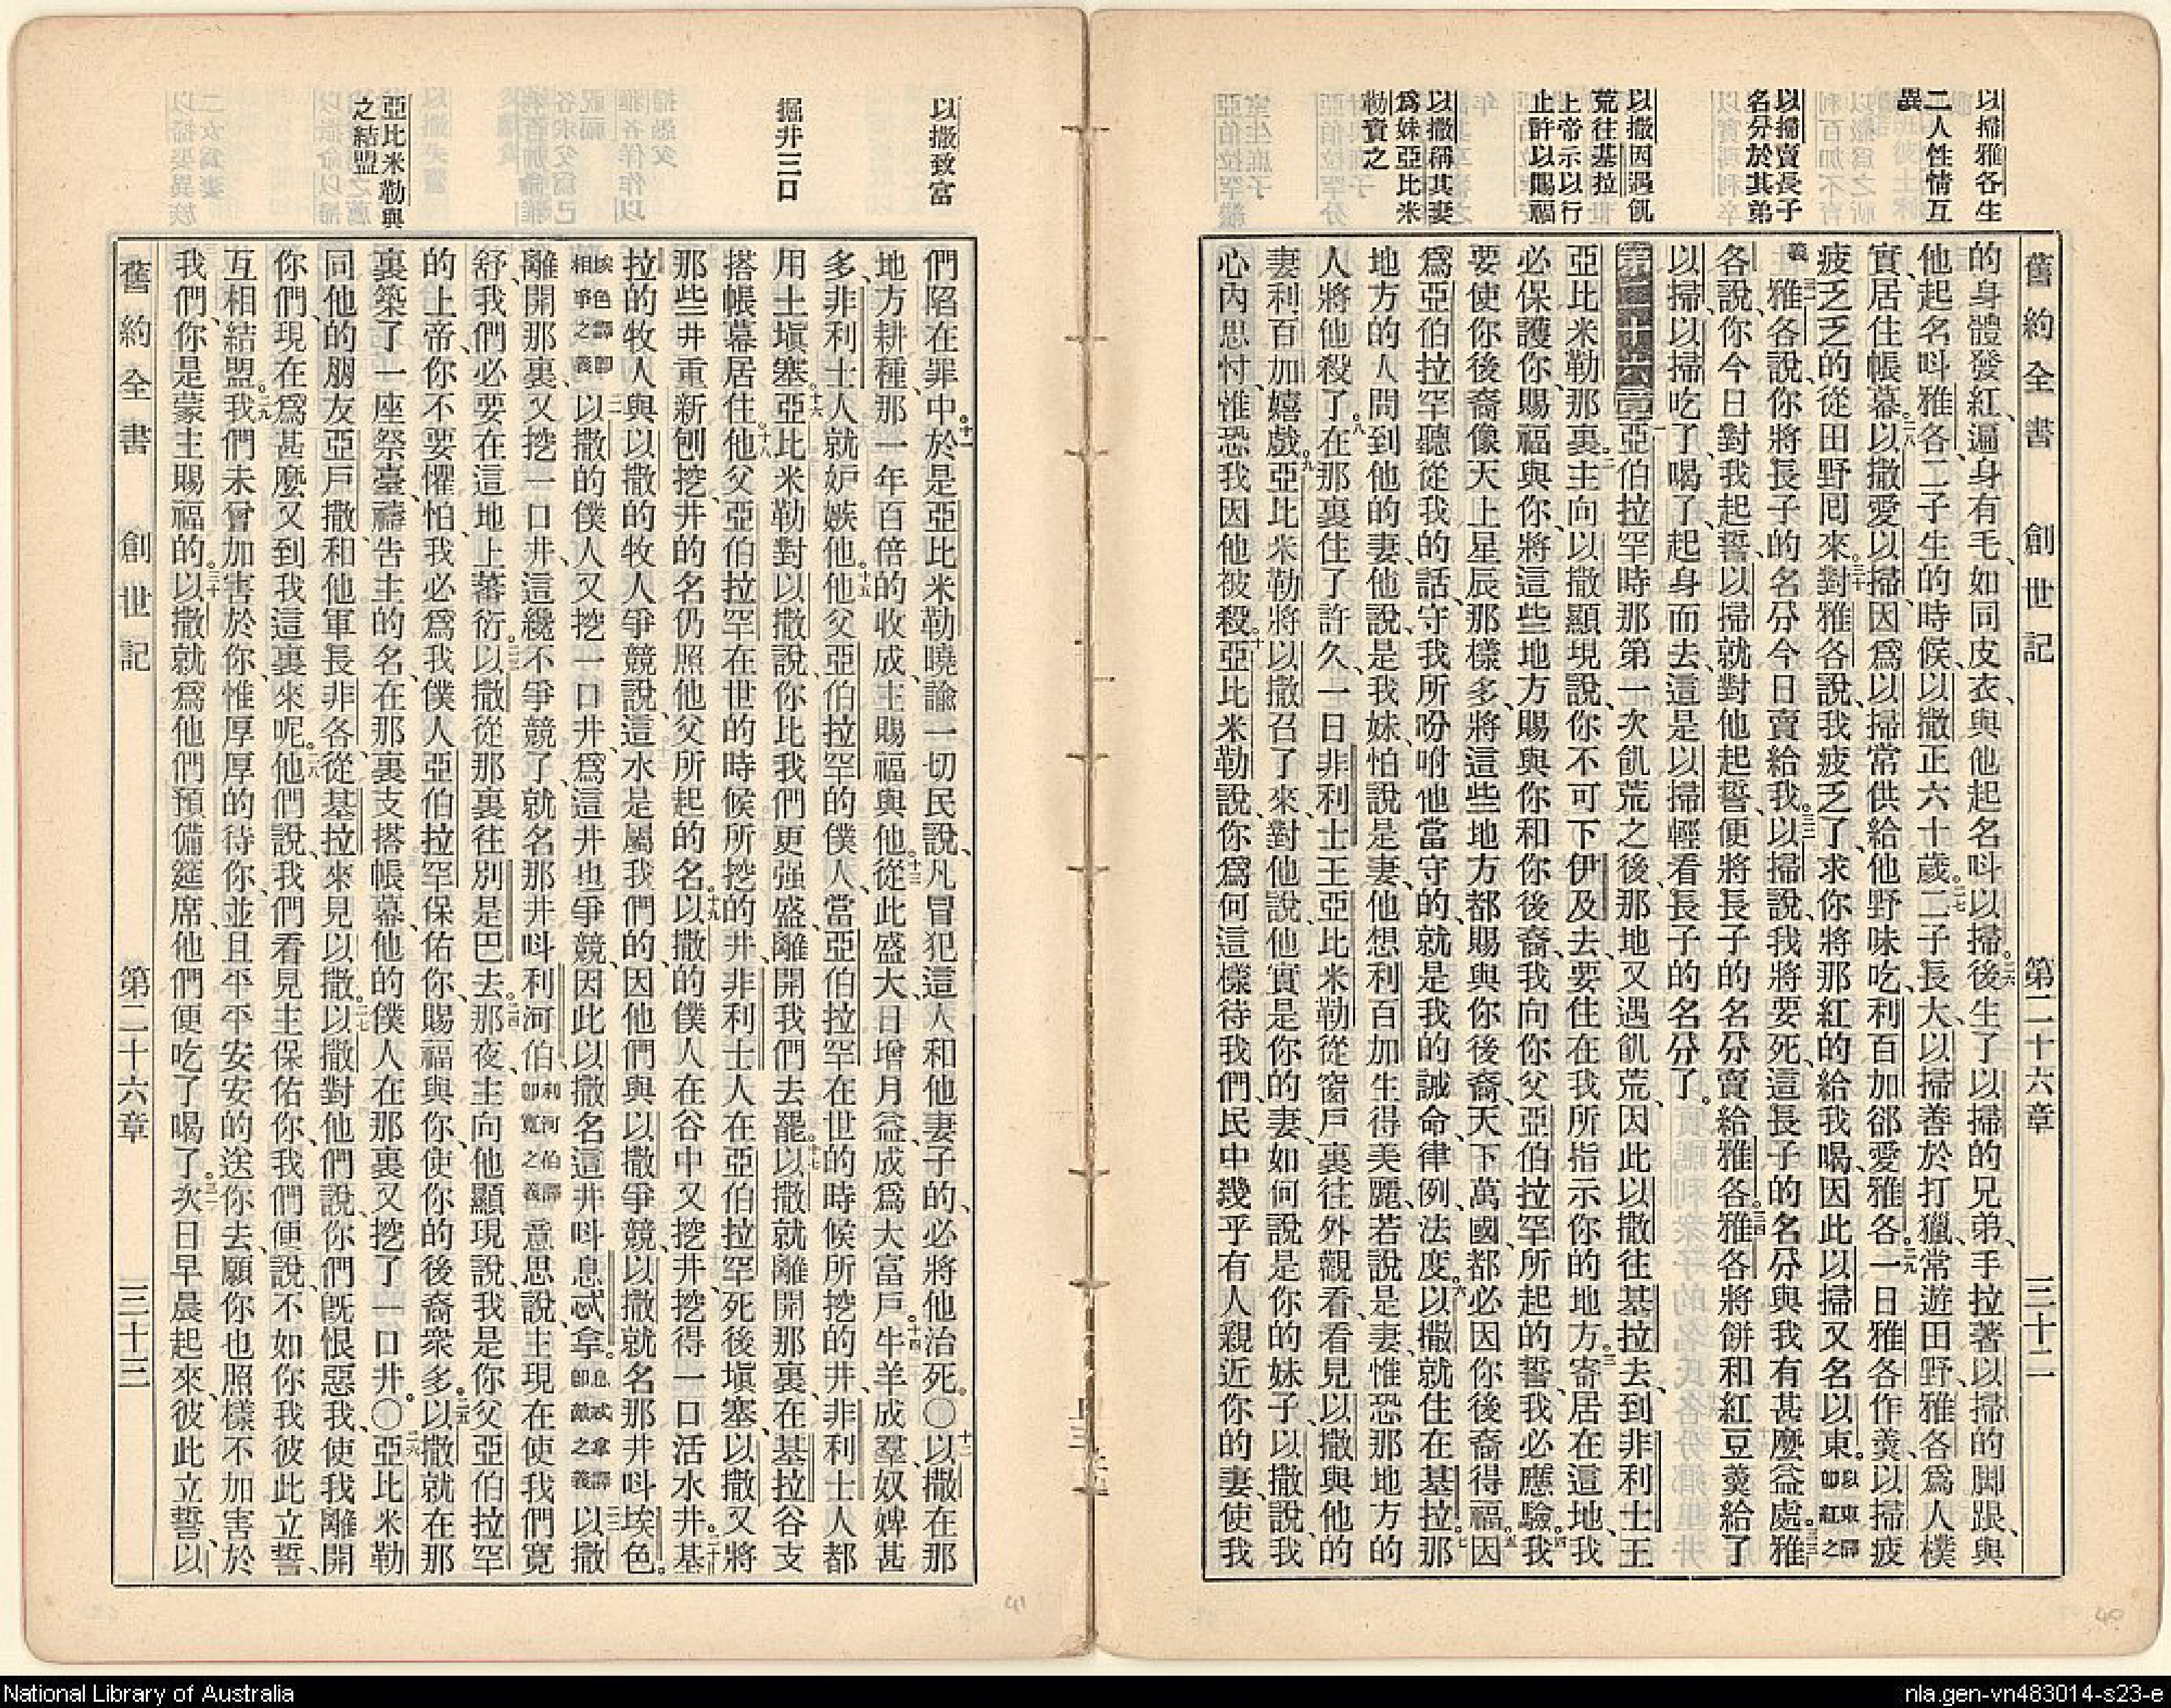 舊約全書 創世記 第二十六章 三十二
以掃雅各生
二人性情互
異
以掃賣長子
名分於其弟
以撒因遇飢
荒往基拉
上帝示以行
止許以賜福
以撒稱其妻
爲妹亞比米
勒責之
的身體發紅、遍身有毛、如同皮衣、與他起名呌以掃。二六後生了以掃的兄弟、手拉著以掃的脚跟、與
他起名呌雅各、二子生的時候、以撒正六十歲。二七二子長大、以掃善於打獵、常遊田野、雅各爲人樸
實、居住帳幕。二八以撒愛以掃、因爲以掃常供給他野味吃、利百加卻愛雅各。二九一日雅各作羹、以掃疲
疲乏乏的從田野囘來。三十對雅各說、我疲乏了、求你將那紅的給我喝、因此以掃又名以東。以東譯卽紅之
義三一雅各說、你將長子的名分今日賣給我。三二以掃說、我將要死、這長子的名分與我有甚麽益處。三三雅
各說、你今日對我起誓、以掃就對他起誓、便將長子的名分賣給雅各。三四雅各將餅和紅豆羹給了
以掃、以掃吃了、喝了、起身而去、這是以掃輕看長子的名分了。
第二十六章一亞伯拉罕時那第一次飢荒之後、那地又遇飢荒、因此以撒往基拉去、到非利士王
亞比米勒那裏。二主向以撒顯現說、你不可下伊及去、要住在我所指示你的地方。三寄居在這地、我
必保護你、賜福與你、將這些地方賜與你和你後裔、我向你父亞伯拉罕所起的誓、我必應驗。四我
要使你後裔像天上星辰那樣多、將這些地方都賜與你後裔、天下萬國、都必因你後裔得福。五因
爲亞伯拉罕聽從我的話、守我所吩咐他當守的、就是我的誡命、律例、法度。六以撒就住在基拉。七那
地方的人問到他的妻、他說、是我妹、怕說是妻、他想利百加生得美麗、若說是妻、惟恐那地方的
人將他殺了。八在那裏住了許久、一日非利士王亞比米勒從窗戶裏往外觀看、看見以撒與他的
妻利百加嬉戲。九亞比米勒將以撒召了來、對他說、他實是你的妻、如何說是你的妹子、以撒說、我
心內思忖、惟恐我因他被殺。十亞比米勒說、你爲何這樣待我們、民中幾乎有人親近你的妻、使我
以撒致富
掘井三口
亞比米勒與
之結盟
們陷在罪中。十一於是亞比米勒曉諭一切民說、凡冒犯這人和他妻子的、必將他治死。〇十二以撒在那
地方耕種、那一年百倍的收成、主賜福與他。十三從此盛大、日增月益、成爲大富戶。十四牛羊成羣、奴婢甚
多、非利士人就妒嫉他。十五他父亞伯拉罕的僕人、當亞伯拉罕在世的時候所挖的井、非利士人都
用土塡塞。十六亞比米勒對以撒說、你比我們更强盛、離開我們去罷。十七以撒就離開那裏、在基拉谷支
搭帳幕居住。十八他父亞伯拉罕在世的時候所挖的井、非利士人在亞伯拉罕死後塡塞、以撒又將
那些井重新刨挖、井的名仍照他父所起的名。十九以撒的僕人在谷中又挖井、挖得一口活水井。二十基
拉的牧人與以撒的牧人爭競說、這水是屬我們的、因他們與以撒爭競、以撒就名那井呌埃色。
埃色譯卽相爭之義二一以撒的僕人又挖一口井、爲這井也爭競、因此以撒名這井呌息忒拿。息忒拿譯卽敵之義二二以撒
離開那裏、又挖一口井、這纔不爭競了、就名那井呌利河伯、利河伯譯卽寬之義意思說、主現在使我們寬
舒、我們必要在這地上蕃衍。二三以撒從那裏往別是巴去。二四那夜主向他顯現說、我是你父亞伯拉罕
的上帝、你不要懼怕、我必爲我僕人亞伯拉罕保佑你、賜福與你、使你的後裔衆多。二五以撒就在那
裏築了一座祭臺、禱告主的名、在那裏支搭帳幕、他的僕人在那裏又挖了一口井。〇二六亞比米勒
同他的朋友亞戶撒、和他軍長非各、從基拉來見以撒。二七以撒對他們說、你們旣恨惡我、使我離開
你們、現在爲甚麽又到我這裏來呢。二八他們說、我們看見主保佑你、我們便說、不如你我彼此立誓、
互相結盟。二九我們未曾加害於你、惟厚厚的待你、並且平平安安的送你去、願你也照樣不加害於
我們、你是蒙主賜福的。三十以撒就爲他們預備筵席、他們便吃了喝了。三一次日早晨起來、彼此立誓、以
舊約全書 創世記 第二十六章 三十三
41
40
National Library of Australia
nla.gen-vn483014-s23-e